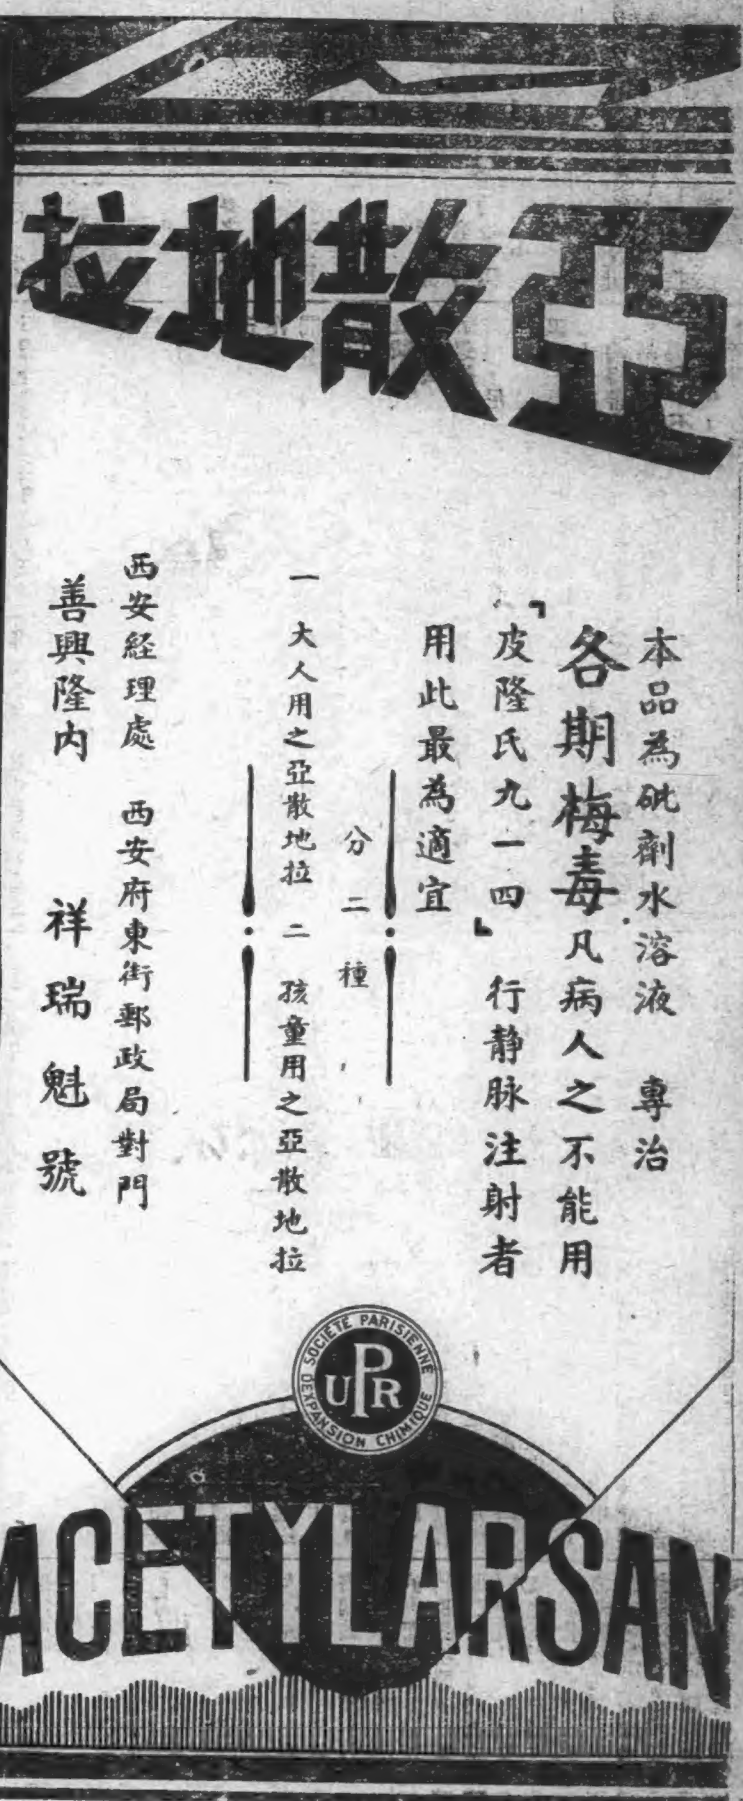 亞散地拉
本品為砒劑水溶液 專治
各期梅毒凡病人之不能用
「皮隆氏九一四」行静脉注射者
用此最為適宜
分二種
一 大人用之亞散地拉 二 孩童用之亞散地拉
西安経理處 西安府東街郵政局對門
善興隆内 祥瑞魁號
SOCIÉTÉ PARISIENNE
D'EXPANSION CHIMIQUE
UPR
ACETYLARSAN